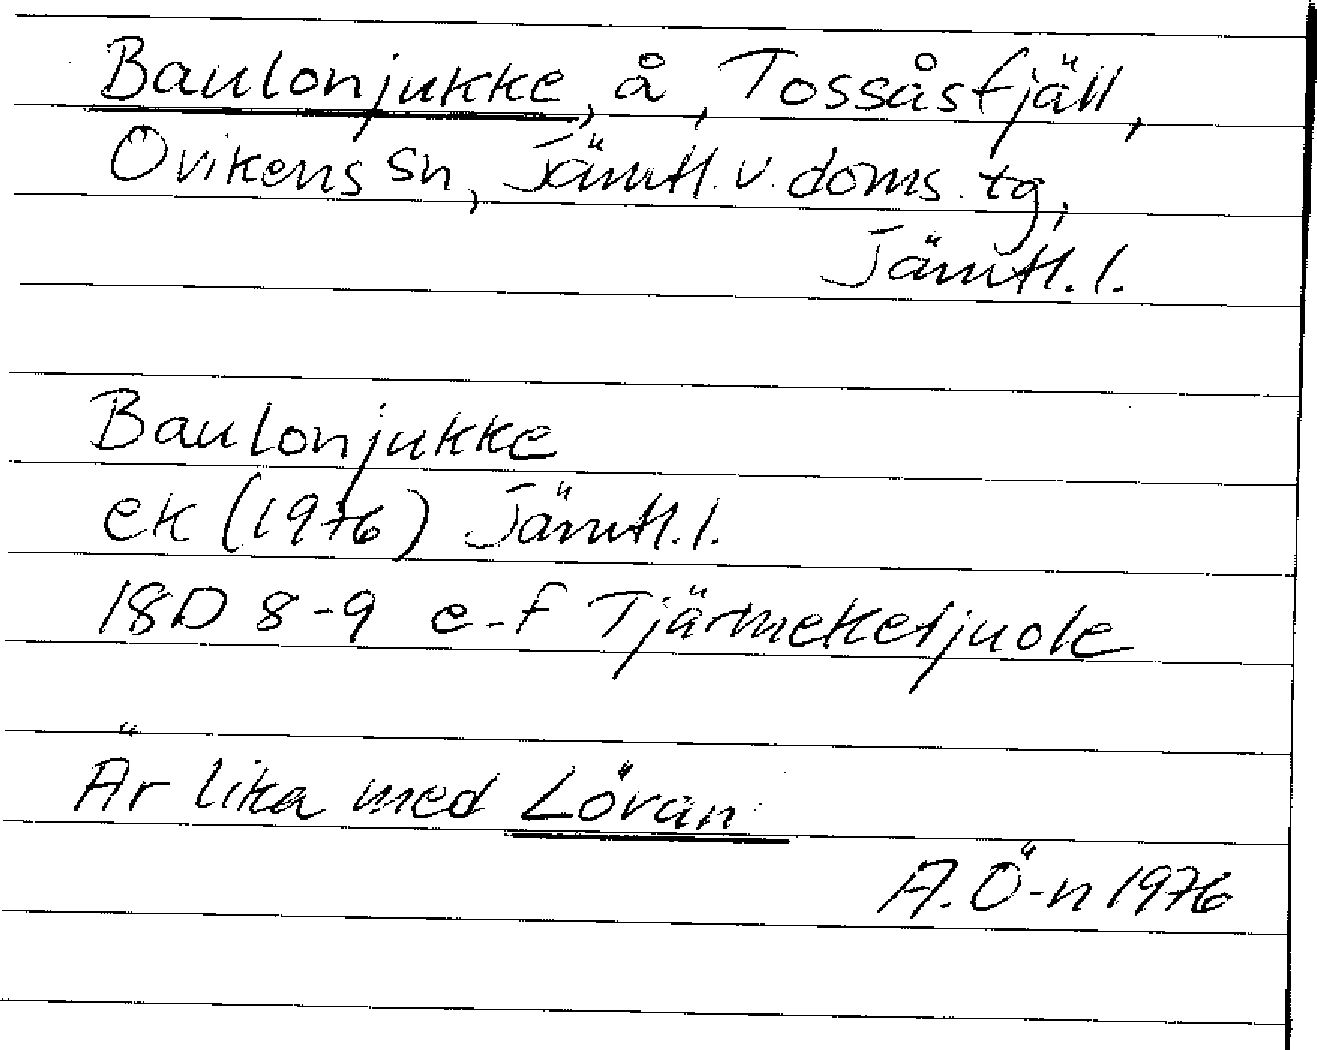 Baulonjukke, å, Tossåsfjäll,
Ovikens sn, Jämtl. v. doms. tg,
Jämtl. l.
Baulonjukke
ek (1976) Jämtl. l.
18D 8-9 e-f Tjärmeketjuole
Är lika med Lövan
A. Ö-n 1976